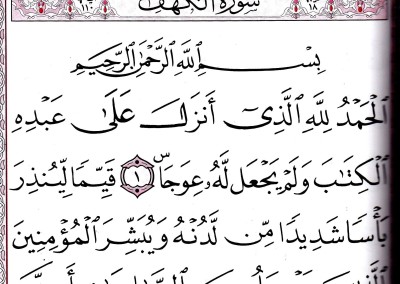 سُورَةُ الكَهْفِ ١٨
بِسْمِ ٱللَّهِ ٱلرَّحْمَٰنِ ٱلرَّحِيمِ
ٱلْحَمْدُ لِلَّهِ ٱلَّذِىٓ أَنزَلَ عَلَىٰ عَبْدِهِ
ٱلْكِتَٰبَ وَلَمْ يَجْعَل لَّهُۥ عِوَجَاۜ ١ قَيِّمًا لِّيُنذِرَ
بَأْسًا شَدِيدًا مِّن لَّدُنْهُ وَيُبَشِّرَ ٱلْمُؤْمِنِينَ